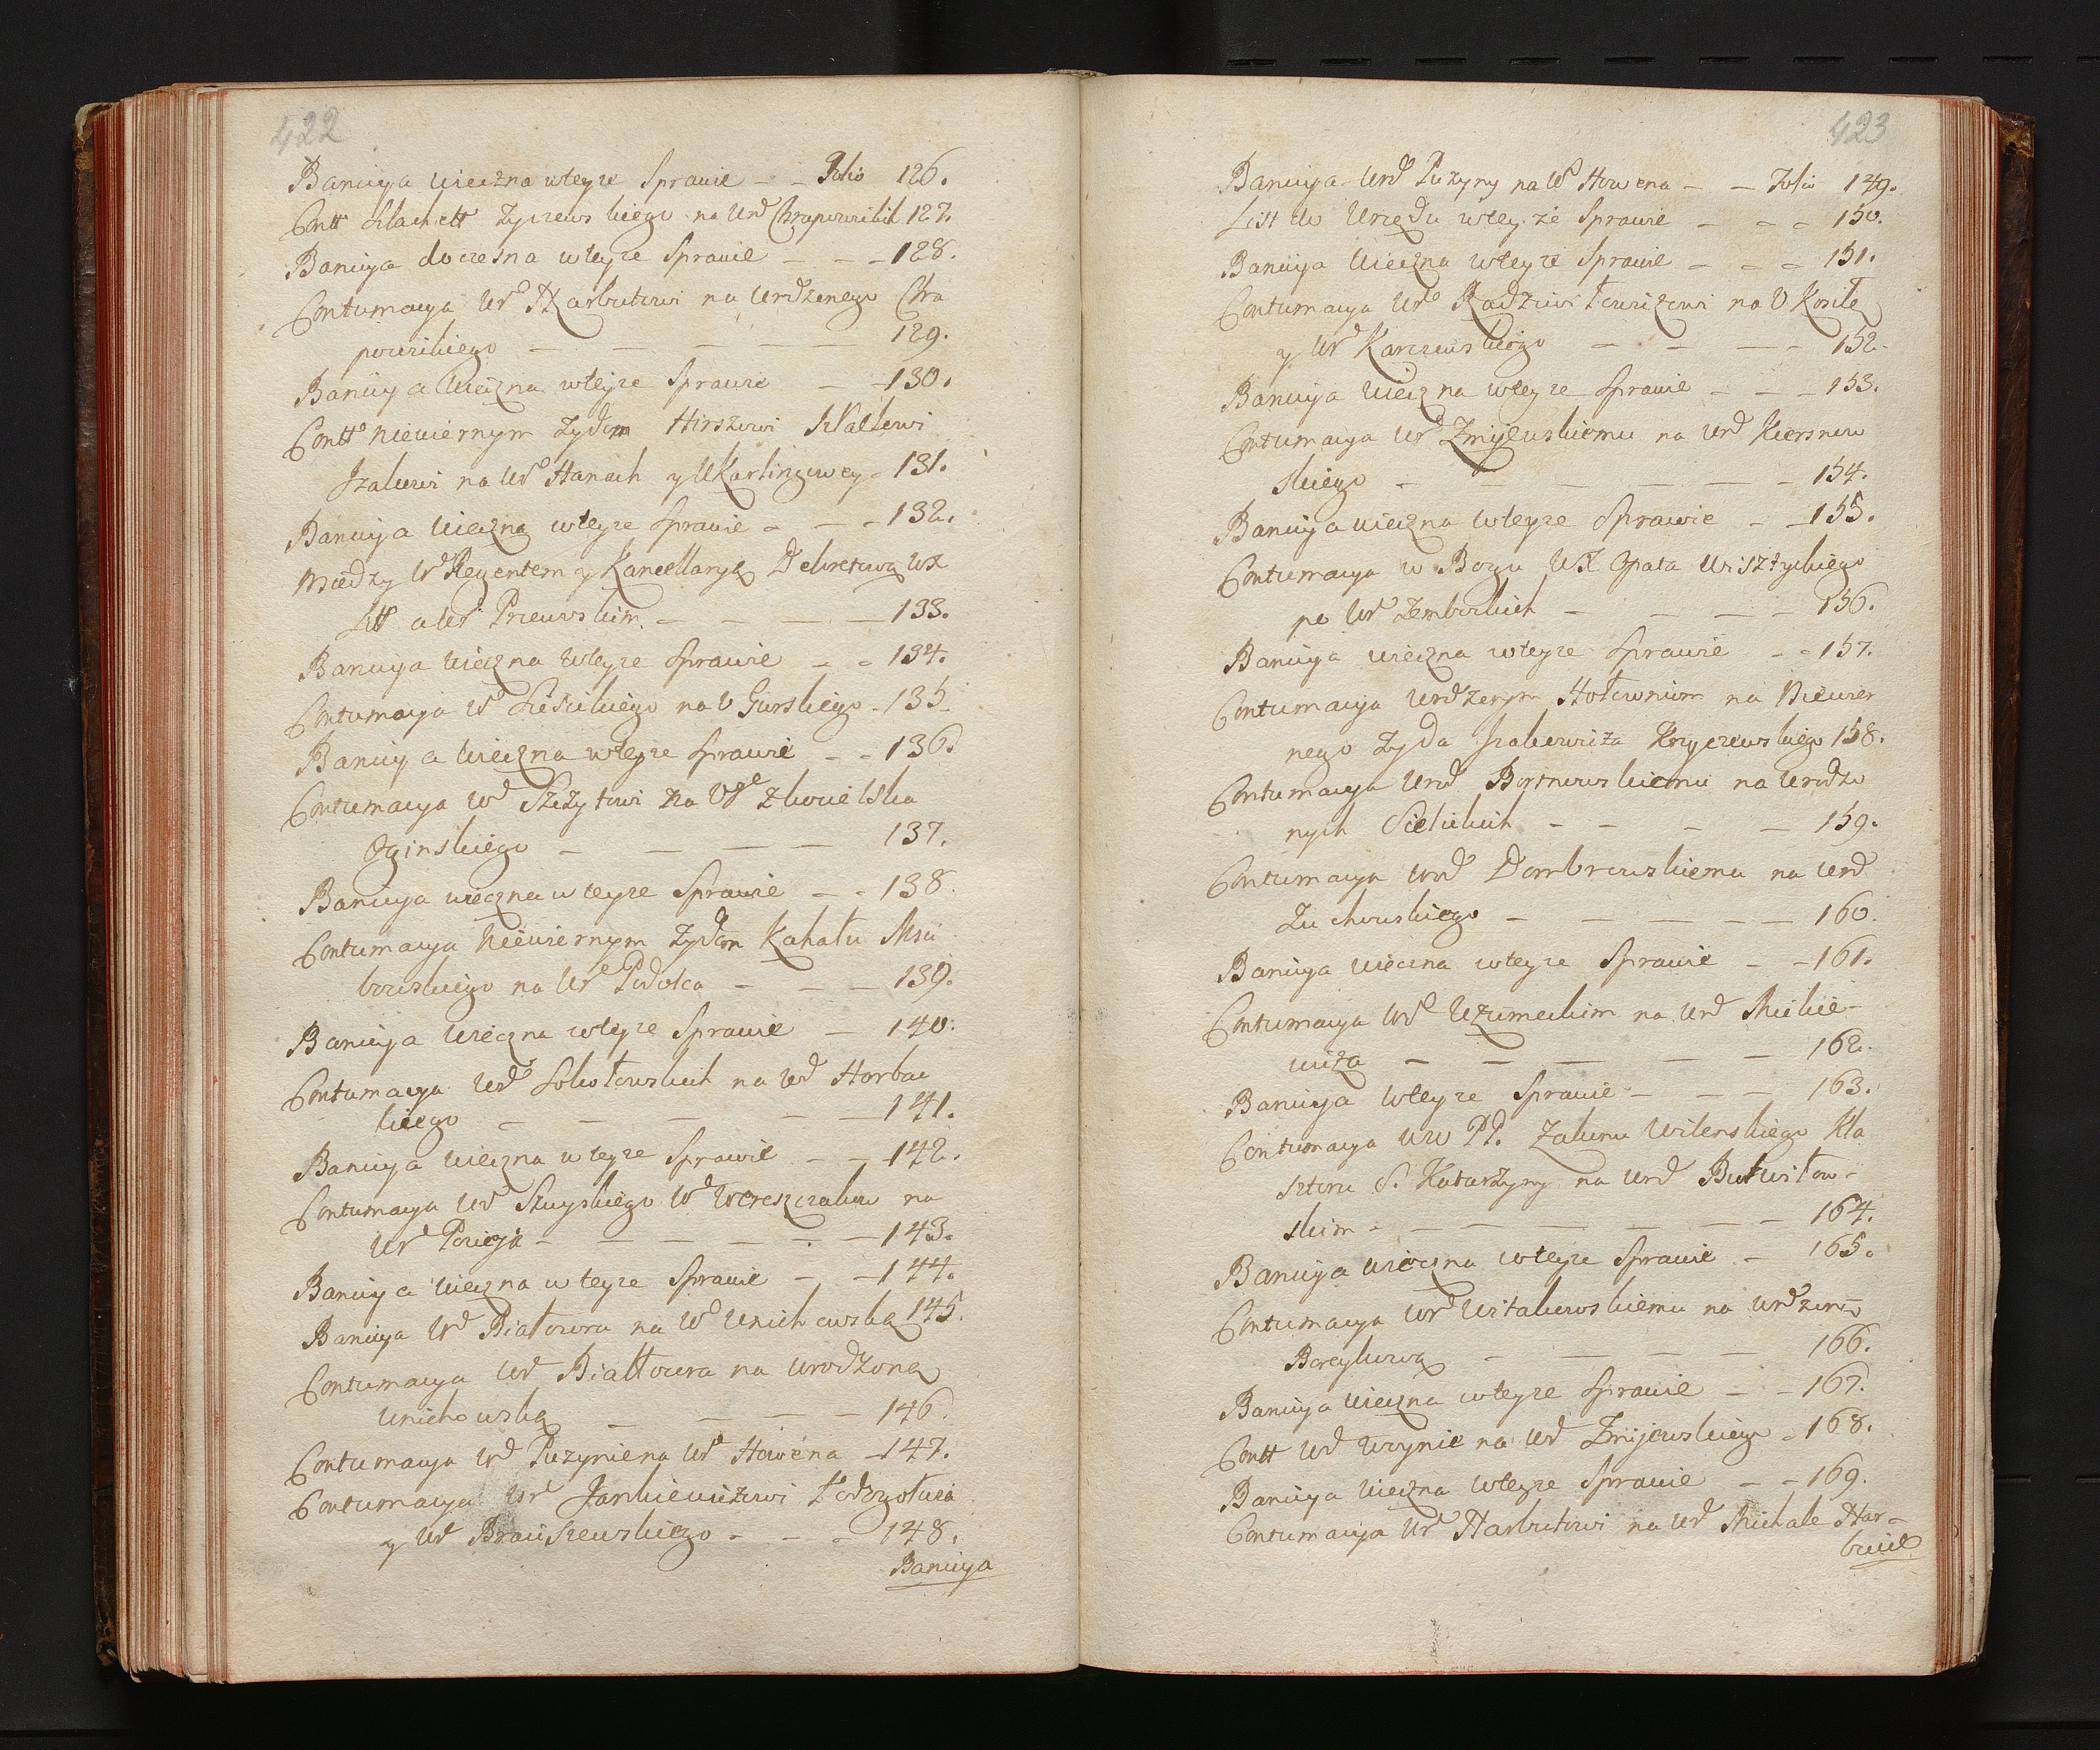 422
Banicya wieczna wteyże Sprawie – – Folio 126.
Contt Szlachett Zyczewskiego na Urd Chrapowickich 127.
Banicya doczesna wteyże Sprawie – – – 128.
Contumacya Ur Harbutowi na Urdzonego Chra
powickiego – – – – – 129.
Banicya Wieczna wteyże Sprawie – – 130.
Contt Niewiernym Zydom Hirszowi
Izakowi na Ur Hanach y UKarlingowey – 131.
Banicya Wieczną wteyże Sprawie – – – 132.
Między Ur Regentem y Kancellaryą Dekretową WX
Litt a Ur Przewskim – – – – 133.
Banicya Wieczna wteyże Sprawie – – 134.
Contumacya Ur na U Gurskiego – 135.
Banicya Wieczna wteyże Sprawie – – 136.
Contumacya Ur Szczytowi na
Oginskiego – – – – 137.
Banicya wieczna wteyże Sprawie – – 138.
Contumacya Niewiernym Zydom Kahału Msci
bowskiego na Ur Podolca – – – 139.
Banicya Wieczna wteyże Sprawie – 140.
Contumacya Urd Sokołowskich na Ud Horbac
kiego – – – – – 141.
Banicya Wieczna wteyże Sprawie – – 142.
Contumacya Ur Szuyskiego Ur Wereszczaków na
Ur Pocieja – – – – – – 143.
Banicya Wieczna wteyże Sprawie – – 144.
Banicya Ur Białozora na Ur Unichowską 145.
Contumacya Ur Białłozora na Urodzoną
Unichowską – – – – 146.
Contumacya Ur Puzynie na Ur Howena – 147.
Contumacya Ur Jankiewiczowi
y Ur Braiszewskiego – – – 148.
Banicya
423
Banicya Urd Puzyny na Ur Howena – – Folio 149.
List do Urzędu wteyże Sprawie – – – 150.
Banicya Wieczna wteyże Sprawie – – – 151.
Contumacya Ur Radziwiłowiczowi na U Koziłę
y Ur Karczewskiego – – – – 152.
Banicya Wieczna wteyże Sprawie – – – 153.
Contumacya Ur Zmijewskiemu na Urd Kiersnow
skiego – – – – – – 154.
Banicya wieczna wteyże Sprawie – – 155.
Contumacya w Bogu WX Opata Wisztyckiego
po Ur Zembockich – – – – 156.
Banicya wieczna wteyże Sprawie – – 157.
Contumacya Urdzenym Hołowniom na Niewier
nego Zyda Izakowicza Kryczewskiego 158.
Contumacya Urd Bortnowskiemu na Urodzo
nych Sielickich – – – – 159.
Contumacya Urd Dombrowskiemu na Urd
Zuchowskiego – – – – – 160.
Banicya wieczna wteyże Sprawie – – 161.
Contumacya Ur Uzumeckim na Urd Mickie–
wicza – – – – – 162.
Banicya wteyże Sprawie – – – 163.
Contumacya WW PP. Zakonu Wilenskiego Kla
sztoru S. Katarzyny na Urd
skim – – – – – – – 164.
Banicya wieczna wteyże Sprawie – 165.
Contumacya Ur Witakowskiemu na
Boreykową – – – – 166.
Banicya Wieczna wteyże Sprawie – – 167.
Contt Ud Woynie na Ud Zmijewskiego – 168.
Banicya Wieczna wteyże Sprawie – – 169.
Contumacya Ur Harbutowi na Ur Michale Har–
bucie